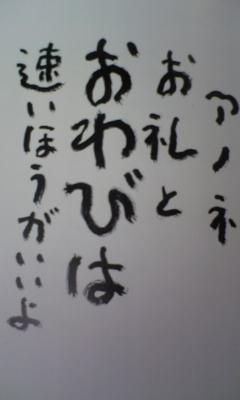 アノネ
お礼と
おわびは
速いほうがいいよ